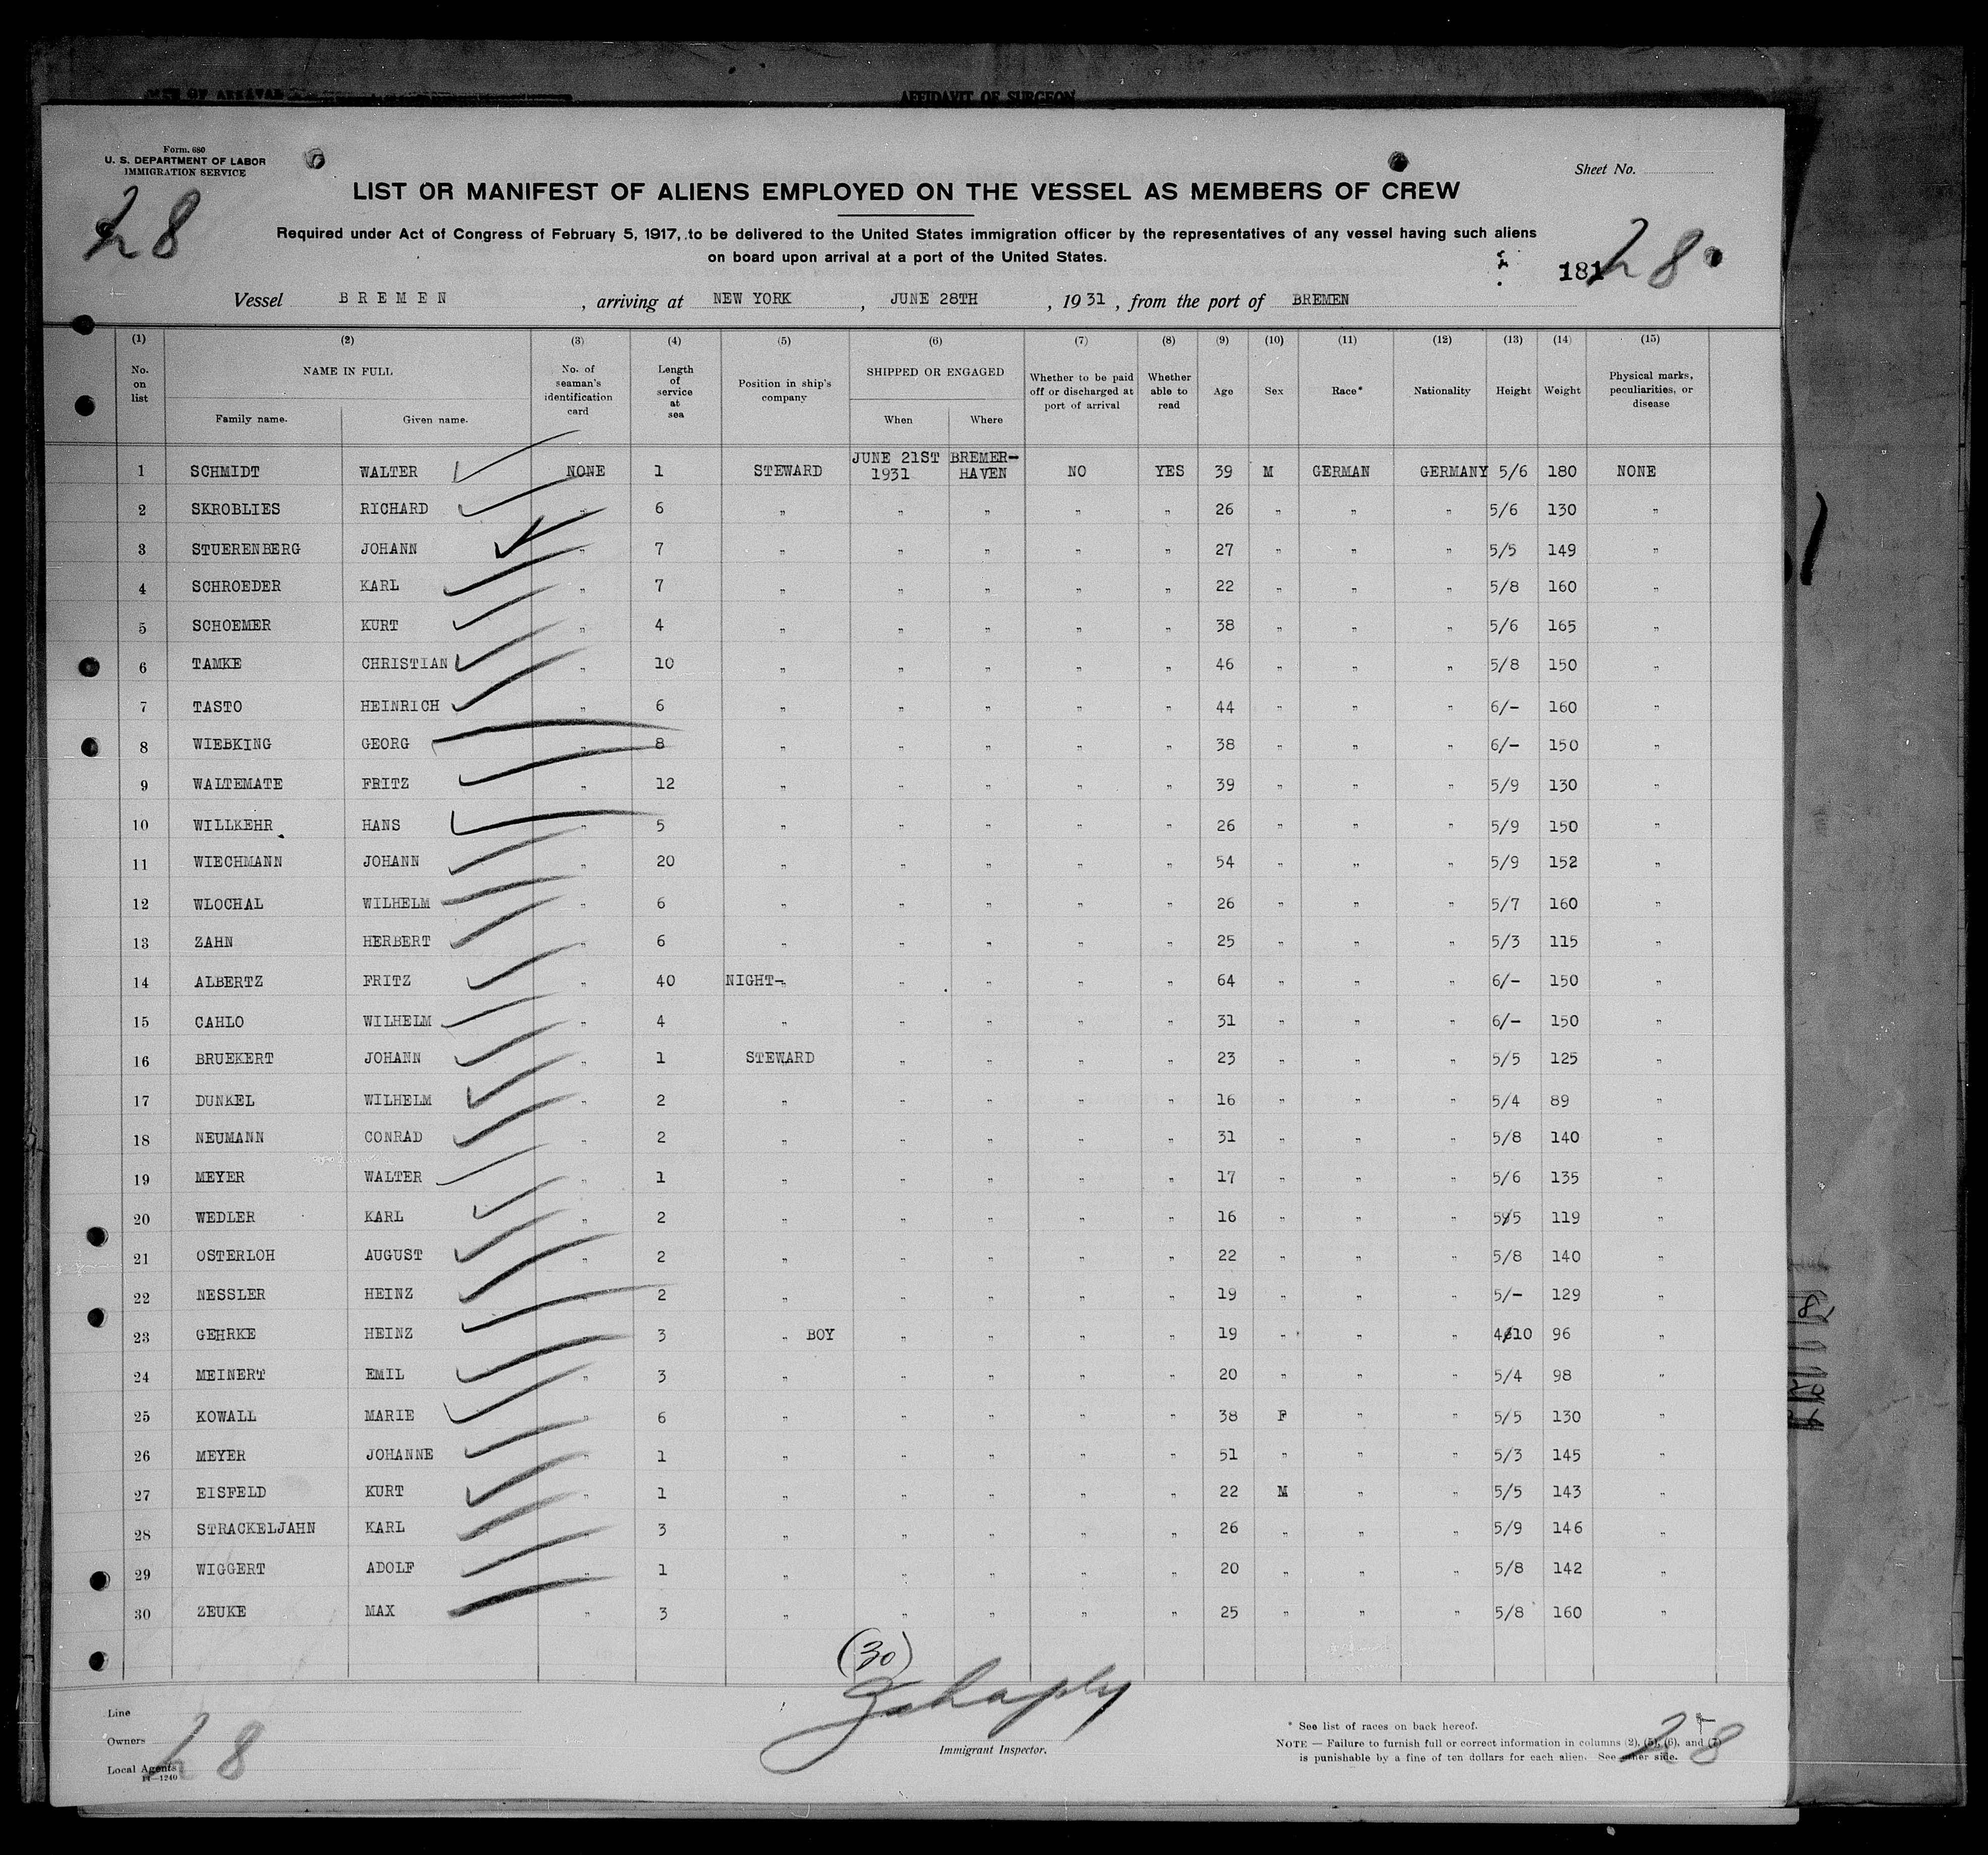 AFFIDAVIT OF SURGEON
Form. 680
U. S. DEPARTMENT OF LABOR
IMMIGRATION SERVICE
Sheet No.
28
LIST OR MANIFEST OF ALIENS EMPLOYED ON THE VESSEL AS MEMBERS OF CREW
Required under Act of Congress of February 5, 1917, to be delivered to the United States immigration officer by the representatives of any vessel having such aliens
on board upon arrival at a port of the United States.
181 28
Vessel BREMEN , arriving at NEW YORK , JUNE 28TH , 1931 , from the port of BREMEN
(1) (2) (3) (4) (5) (6) (7) (8) (9) (10) (11) (12) (13) (14) (15)
No. on list NAME IN FULL Family name. Given name. No. of seaman's identification card Length of service at sea Position in ship's company SHIPPED OR ENGAGED When Where Whether to be paid off or discharged at port of arrival Whether able to read Age Sex Race* Nationality Height Weight Physical marks, peculiarities, or disease
1 SCHMIDT WALTER NONE 1 STEWARD JUNE 21ST 1931 BREMER-HAVEN NO YES 39 M GERMAN GERMANY 5/6 180 NONE
2 SKROBLIES RICHARD " 6 " " " " " 26 " " " 5/6 130 "
3 STUERENBERG JOHANN " 7 " " " " " 27 " " " 5/5 149 "
4 SCHROEDER KARL " 7 " " " " " 22 " " " 5/8 160 "
5 SCHOEMER KURT " 4 " " " " " 38 " " " 5/6 165 "
6 TAMKE CHRISTIAN " 10 " " " " " 46 " " " 5/8 150 "
7 TASTO HEINRICH " 6 " " " " " 44 " " " 6/- 160 "
8 WIEBKING GEORG " 8 " " " " " 38 " " " 6/- 150 "
9 WALTEMATE FRITZ " 12 " " " " " 39 " " " 5/9 130 "
10 WILLKEHR HANS " 5 " " " " " 26 " " " 5/9 150 "
11 WIECHMANN JOHANN " 20 " " " " " 54 " " " 5/9 152 "
12 WLOCHAL WILHELM " 6 " " " " " 26 " " " 5/7 160 "
13 ZAHN HERBERT " 6 " " " " " 25 " " " 5/3 115 "
14 ALBERTZ FRITZ " 40 NIGHT-" " " " " 64 " " " 6/- 150 "
15 CAHLO WILHELM " 4 " " " " " 31 " " " 6/- 150 "
16 BRUEKERT JOHANN " 1 STEWARD " " " " 23 " " " 5/5 125 "
17 DUNKEL WILHELM " 2 " " " " " 16 " " " 5/4 89 "
18 NEUMANN CONRAD " 2 " " " " " 31 " " " 5/8 140 "
19 MEYER WALTER " 1 " " " " " 17 " " " 5/6 135 "
20 WEDLER KARL " 2 " " " " " 16 " " " 5/5 119 "
21 OSTERLOH AUGUST " 2 " " " " " 22 " " " 5/8 140 "
22 NESSLER HEINZ " 2 " " " " " 19 " " " 5/- 129 "
23 GEHRKE HEINZ " 3 " BOY " " " " 19 " " " 4/10 96 "
24 MEINERT EMIL " 3 " " " " " 20 " " " 5/4 98 "
25 KOWALL MARIE " 6 " " " " " 38 F " " 5/5 130 "
26 MEYER JOHANNE " 1 " " " " " 51 " " " 5/3 145 "
27 EISFELD KURT " 1 " " " " " 22 M " " 5/5 143 "
28 STRACKELJAHN KARL " 3 " " " " " 26 " " " 5/9 146 "
29 WIGGERT ADOLF " 1 " " " " " 20 " " " 5/8 142 "
30 ZEUKE MAX " 3 " " " " " 25 " " " 5/8 160 "
(30)
Line
Owners
Local Agents
14—1240
28
Immigrant Inspector.
* See list of races on back hereof.
NOTE — Failure to furnish full or correct information in columns (2), (5), (6), and (7)
is punishable by a fine of ten dollars for each alien. See other side.
28